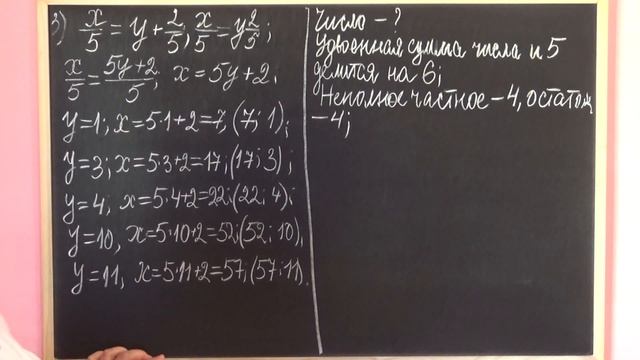 3) x/5 = y + 2/5, x/5 = y 2/5;
x/5 = (5y+2)/5; x = 5y+2;
y=1; x=5·1+2=7, (7; 1);
y=3; x=5·3+2=17, (17; 3);
y=4; x=5·4+2=22; (22; 4);
y=10, x=5·10+2=52; (52; 10),
y=11, x=5·11+2=57; (57; 11).
Число – ?
Удвоенная сумма числа и 5
делится на 6;
Неполное частное – 4, остаток
– 4;